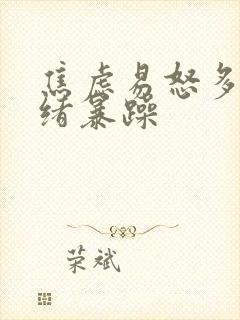 焦虑易怒多
绪暴躁
荣斌